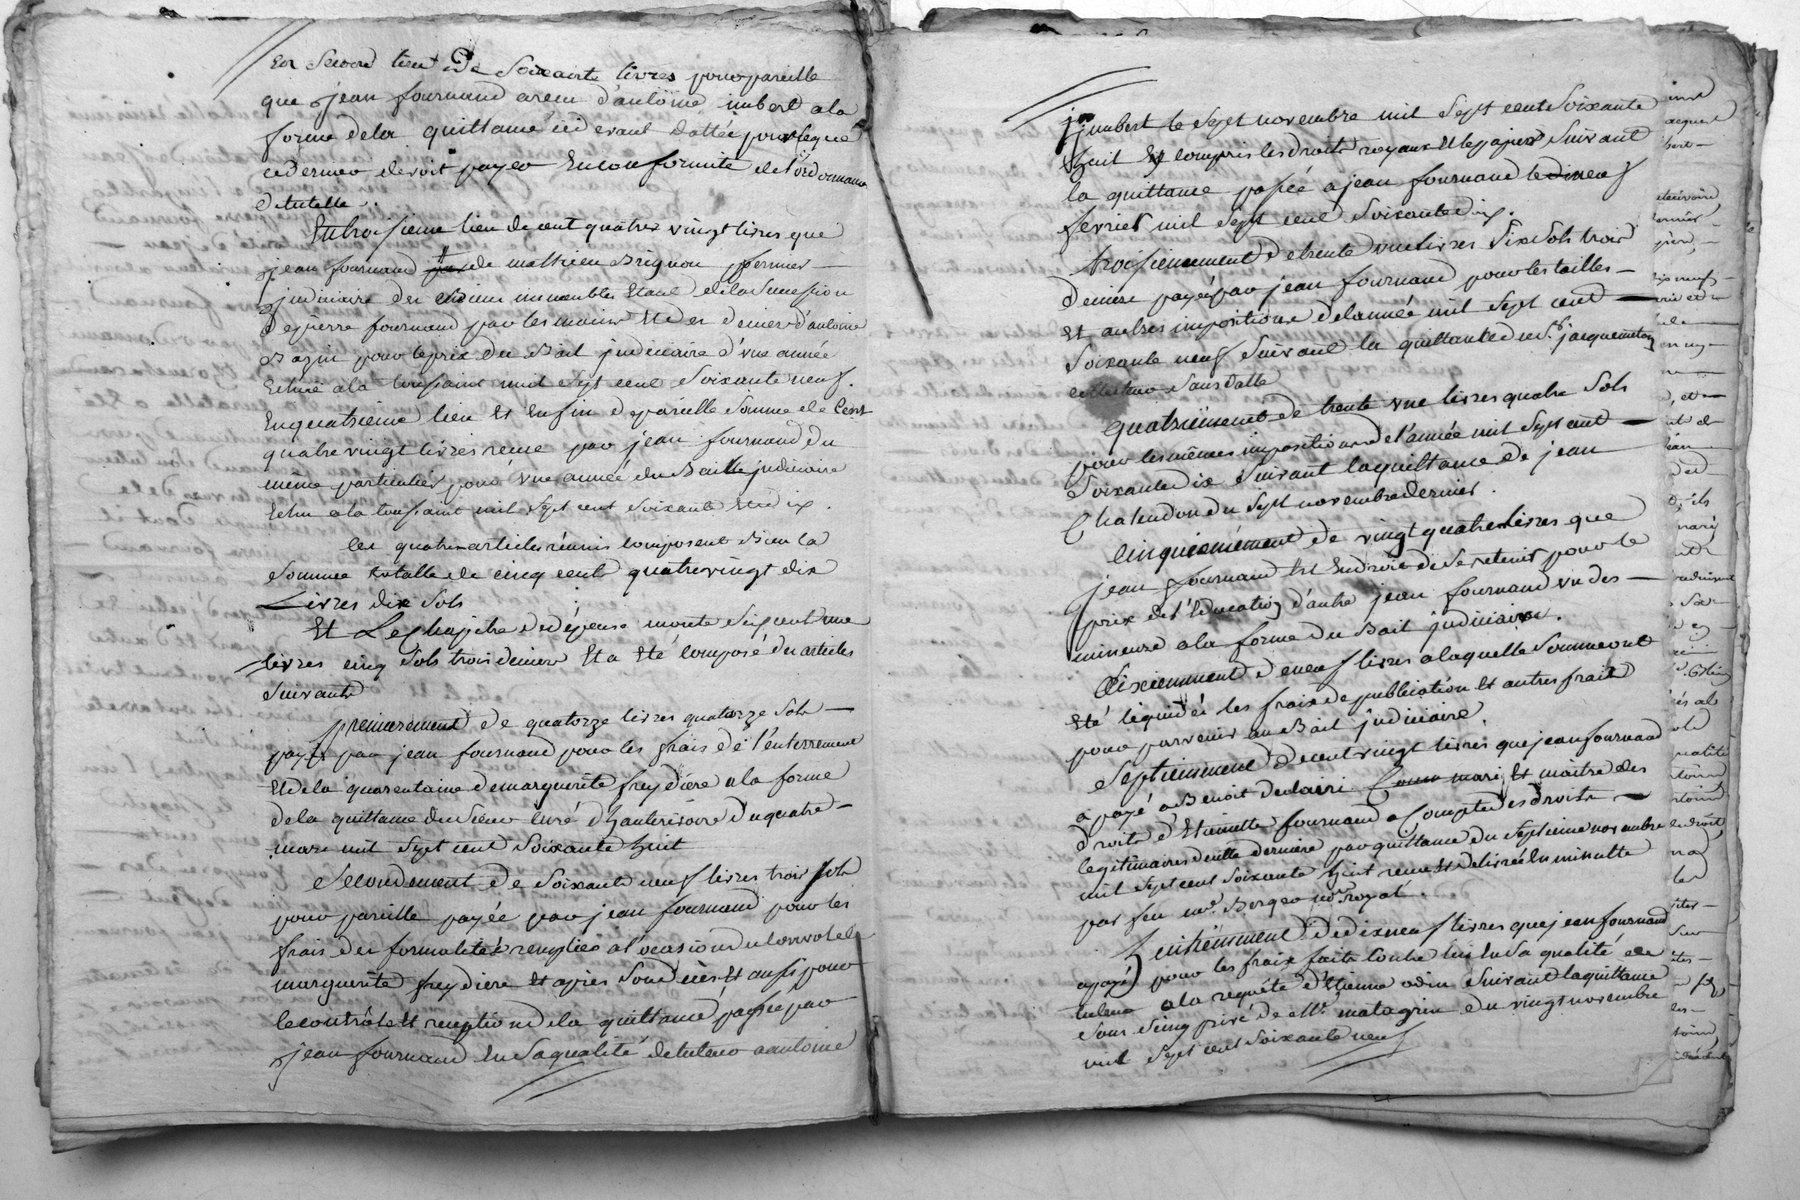 En second lieu De Soixante livres pour pareille
que jean fournand a recu d'antoine imbert a la
forme de la quittance ci devant dattée pour le que
ce dernier devoit payer En conformité de l'ordonnance
de tutelle.
En troisieme lieu de cent quatre vingt livres que
jean fournand de mathieu Brignon fermier
judiciaire des immeubles de la succession
de pierre fournand par les mains Et des deniers d'antoine
Bazin pour le prix du Bail judiciaire d'une année
Echue a la toussaint mil sept cent soixante neuf.
En quatrieme lieu Et Enfin de pareille somme de Cent
quatre vingt livres reçue par jean fournand du
même particulier pour une année du Bail judiciaire
Echu a la toussaint mil sept cent soixante Et dix.
les quatre articles réunis composent Bien la
somme totalle de cinq cents quatre vingt dix
Livres dix sols
Et Le Chapitre de dépense monte Six cent une
livres cinq sols trois deniers Et a Eté composé des articles
suivants
premierement de quatorze livres quatorze sols
payés par jean fournand pour les frais de l'enterrement
Et de la quarantaine de marguerite freydiere a la forme
de la quittance du Sieur curé d'hauterivoire du quatre
mars mil sept cent soixante huit
Secondement de soixante neuf livres trois sols
pour pareille payée par jean fournand pour les
frais des formalités remplies a l'ocasion du convol de
marguerite freydiere Et après son décès Et aussi pour
le contrôle Et reception de la quittance passée par
jean fournand En sa qualité de tuteur a antoine
imbert le sept novembre mil sept cent soixante
huit Et compris les droits royaux Et le papier suivant
la quittance passée a jean fournand le dix neuf
fevrier mil sept cent soixante dix.
troisiemement de trente une livres six sols trois
deniers payés par jean fournand pour les tailles
Et autres impositions de l'année mil sept cent
soixante neuf suivant la quittance du Sr. jacquemeton
collecteur sans datte
quatriemement de trente une livres quatre sols
pour les mêmes impositions de l'année mil sept cent
soixante dix suivant la quittance de jean
Chalendon du sept novembre dernier.
Cinquiemement de vingt quatre livres que
jean fournand Est En droit de se retenir pour le
prix de l'Education d'autre jean fournand un des
mineurs a la forme du Bail judiciaire.
Sixiemement de neuf livres a laquelle somme ont
Eté liquidés les frais de publication Et autres frais
pour parvenir au Bail judiciaire.
Septiemement de cent vingt livres que jean fournand
a payé a Benoit mari Et maitre des
droits d'Etiennette fournand a Compte des droits
legitimaires de cette derniere par quittance du septieme novembre
mil sept cent soixante huit reçue Et delivrée En minutte
par feu me. Berger nre. royal.
huitiemement de dix neuf livres que jean fournand
a payé pour les frais faits contre lui En sa qualité de
tuteur a la requête d'Etienne odin suivant la quittance
sous seing privé de Me. matagrin du vingt novembre
mil sept cent soixante neuf